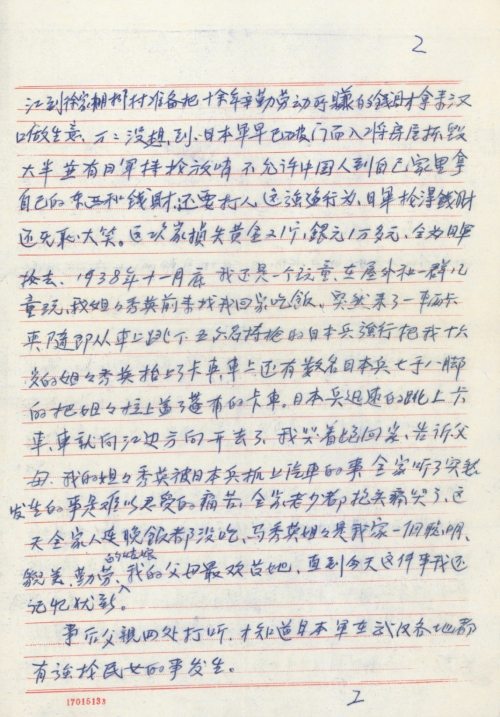 2
江到徐家棚那村准备把十余年辛勤劳动所赚的钱财拿来汉
口做生意,万万没想到,日本军早已破门而入将房屋拆毁
大半 並有日军持枪放哨 不允许中国人到自己家里拿
自己的东西和钱财,还要打人,这强盗行为,日军抢得钱财
还无耻大笑。这次我家损失黄金21斤,銀元1万多元,全为日軍
抢去。1938年十一月底,我还是一个玩童,在屋外和一群儿
童玩,我姐々秀英前来找我回家吃飯,突然来了一辆卡
車,随即从車上跳下五六名持枪的日本兵強行把我十六
岁的姐々秀英拍上了卡車,車上还有数名日本兵七手八脚
的把姐々拉上盖了蓬布的卡車。日本兵迅速的跳上卡
車,車就向江边方向开去了,我哭着跑回家,告訴父
母,我的姐々秀英被日本兵抓上汽車的事,全家听了突然
发生的事是难以忍受的痛苦,全家老少都抱头痛哭了,这
天全家人連晚飯都没吃,马秀英姐々是我家一個聪明、
貌美、勤劳的姑娘,我的父母最欢喜她,直到今天这件事我还
记忆犹新。
事后父親四处打听,才知道日本軍在武汉各地都
有強抢民女的事发生。
1701513
2